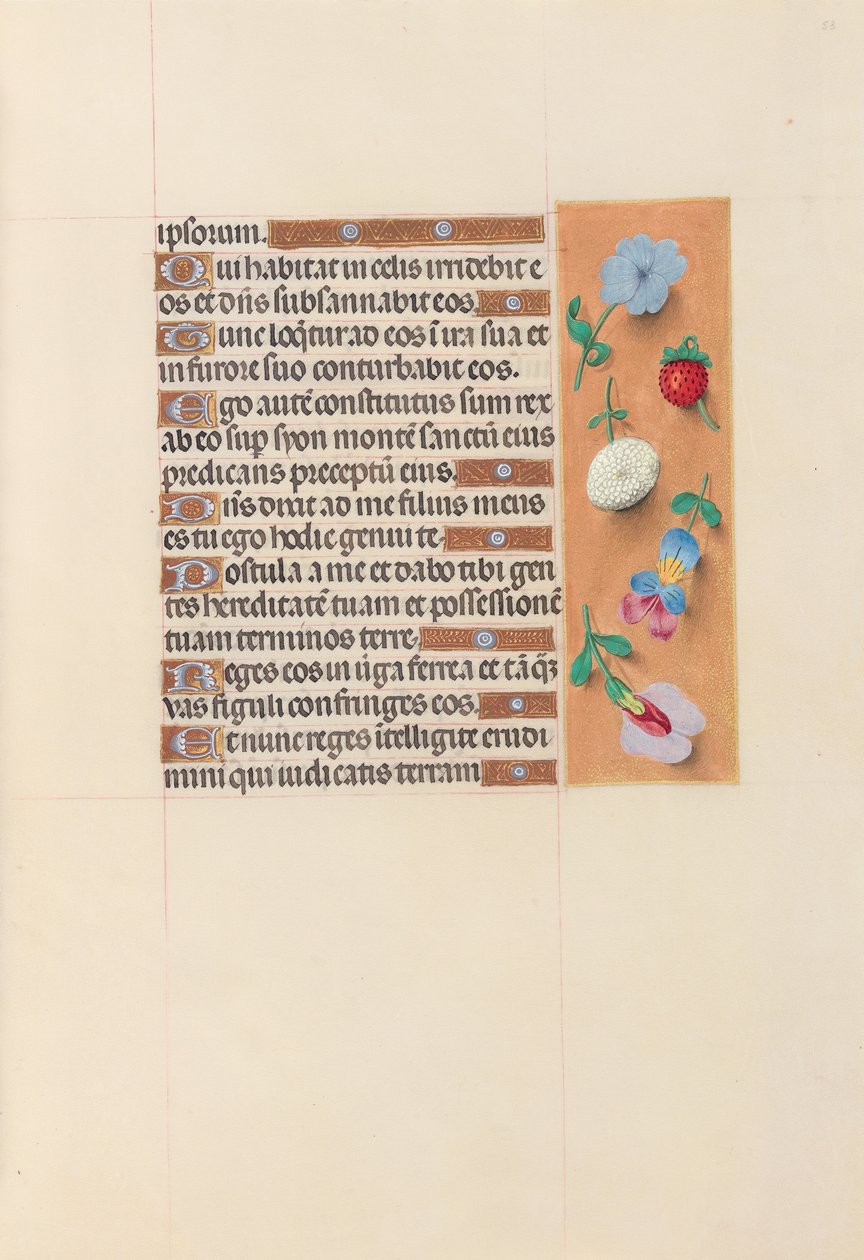 53
ipsorum.
Qui habitat in celis irridebit e
os et dñs subsannabit eos.
Tunc loq̃tur ad eos ĩ ira sua et
in furore suo conturbabit eos.
Ego autẽ constitutus sum rex
ab eo sup̱ syon montẽ sanctũ eius
predicans preceptũ eius.
Dñs dixit ad me filius meus
es tu ego hodie genui te.
Postula a me et dabo tibi gen
tes hereditatẽ tuam et possessionẽ
tuam terminos terre.
Reges eos in ũga ferrea et tãq̃ꝫ
vas figuli confringes eos.
Et nunc reges ĩtelligite erudi
mini qui iudicatis terram